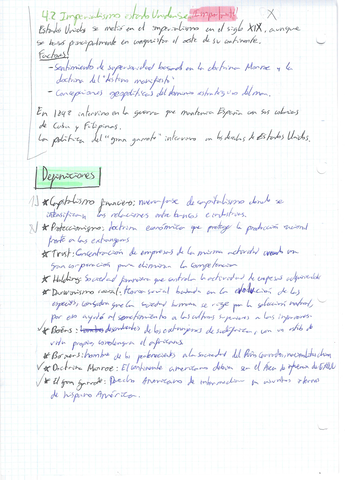 4.2 Imperialismo estadounidense. Importante X
Estados Unidos se metió en el imperialismo en el siglo XIX, aunque
se basó principalmente en conquistar el oeste de su continente.
Factores:
- Sentimiento de superioridad basado en la doctrina Monroe y la
doctrina del "destino manifiesto"
- Concepciones geopolíticas del dominio estratégico del mar.
En 1898 intervino en la guerra que mantenía España con sus colonias
de Cuba y Filipinas.
La política del "gran garrote" intervino en los de Estados Unidos.
Definiciones
* Capitalismo financiero: nueva fase de capitalismo donde se
intensifican las relaciones entre bancos e industrias.
* Proteccionismo: doctrina económica que protege la producción nacional
frente a las extranjeras
* Trust: Concentración de empresas de la misma actividad creando una
gran corporación para eliminar la competencia
* Holding: Sociedad financiera que controla la actividad de empresas
* Darwinismo social: teoría social basada en la evolución de las
especies, considera que la sociedad humana se rige por la selección natural,
por eso el sometimiento a las culturas superiores a las inferiores.
* Boers: descendientes de los extranjeros de , con un estilo de
vida propio, el africáans
* Boxers: hombre de los pertenecientes a la sociedad del
* Doctrina Monroe: El continente americano debía ser el área de de EEUU
* El gran garrote: Derecho Americano de intermediar en asuntos internos
de hispano América.